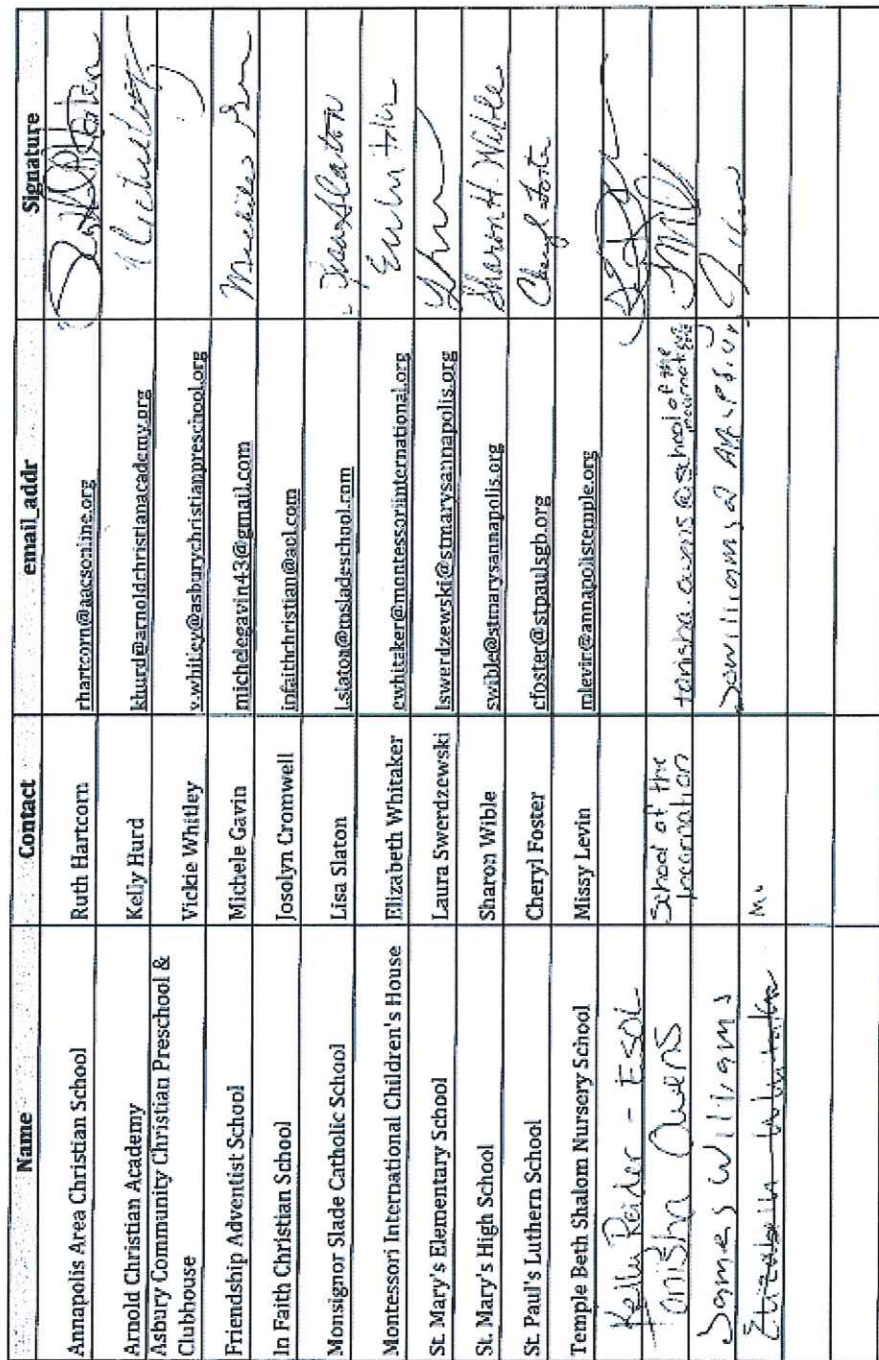 Name Contact email_addr Signature
Annapolis Area Christian School Ruth Hartcorn rhartcorn@aacsonline.org
Arnold Christian Academy Kelly Hurd khurd@arnoldchristianacademy.org
Asbury Community Christian Preschool &
Clubhouse Vickie Whitley v.whitley@asburychristianpreschool.org
Friendship Adventist School Michele Gavin michelegavin43@gmail.com
In Faith Christian School Josolyn Cromwell infaithchristian@aol.com
Monsignor Slade Catholic School Lisa Slaton Lslaton@msladeschool.com Lisa Slaton
Montessori International Children's House Elizabeth Whitaker ewhitaker@montessoriinternational.org
St. Mary's Elementary School Laura Swerdzewski lswerdzewski@stmarysannapolis.org
St. Mary's High School Sharon Wible swible@stmarysannapolis.org Sharon H. Wible
St. Paul's Luthern School Cheryl Foster cfoster@stpaulsgb.org Cheryl Foster
Temple Beth Shalom Nursery School Missy Levin mlevin@annapolistemple.org
Kelly Reider - ESOL
Tanisha Owens School of the Incarnation tanisha.owens@school of the
James Williams
Elizabeth Whitaker